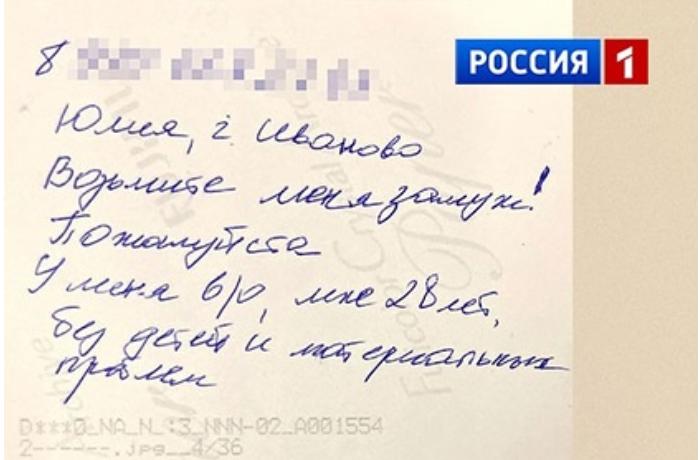 РОССИЯ 1
8
Юлия, г. Иваново
Возьмите меня замуж!
Пожалуйста
У меня в/о, мне 28 лет,
без детей и материальных
проблем
D***O_NA_N_:3_NNN-02_A001554
2------.jpg__4/36